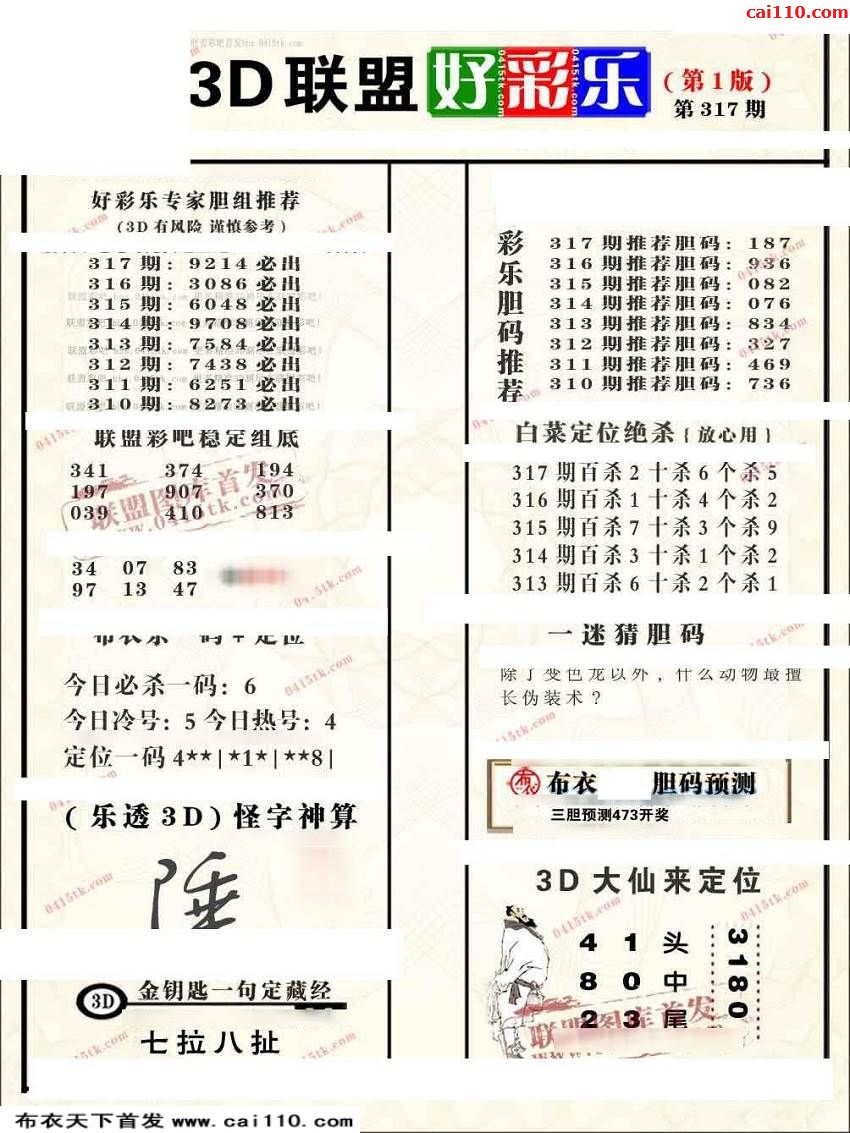 cai110.com
3D联盟好彩乐
(第1版)
第317期
好彩乐专家胆组推荐
(3D有风险 谨慎参考)
317期:9214必出
316期:3086必出
315期:6048必出
314期:9708必出
313期:7584必出
312期:7438必出
311期:6251必出
310期:8273必出
联盟彩吧稳定组底
341 374 194
197 907 370
039 410 813
34 07 83
97 13 47
今日必杀一码:6
今日冷号:5今日热号:4
定位一码4**|*1*|**8|
(乐透3D)怪字神算
3D
金钥匙一句定藏经
七拉八扯
彩乐胆码推荐
317期推荐胆码:187
316期推荐胆码:936
315期推荐胆码:082
314期推荐胆码:076
313期推荐胆码:834
312期推荐胆码:327
311期推荐胆码:469
310期推荐胆码:736
白菜定位绝杀{放心用}
317期百杀2十杀6个杀5
316期百杀1十杀4个杀2
315期百杀7十杀3个杀9
314期百杀3十杀1个杀2
313期百杀6十杀2个杀1
一迷猜胆码
除了变色龙以外,什么动物最擅
长伪装术?
布衣 胆码预测
三胆预测473开奖
3D大仙来定位
4 1头
8 0中
2 3尾
3180
联盟图库首发
www.0415tk.com
0415tk.com
布衣天下首发 www.cai110.com